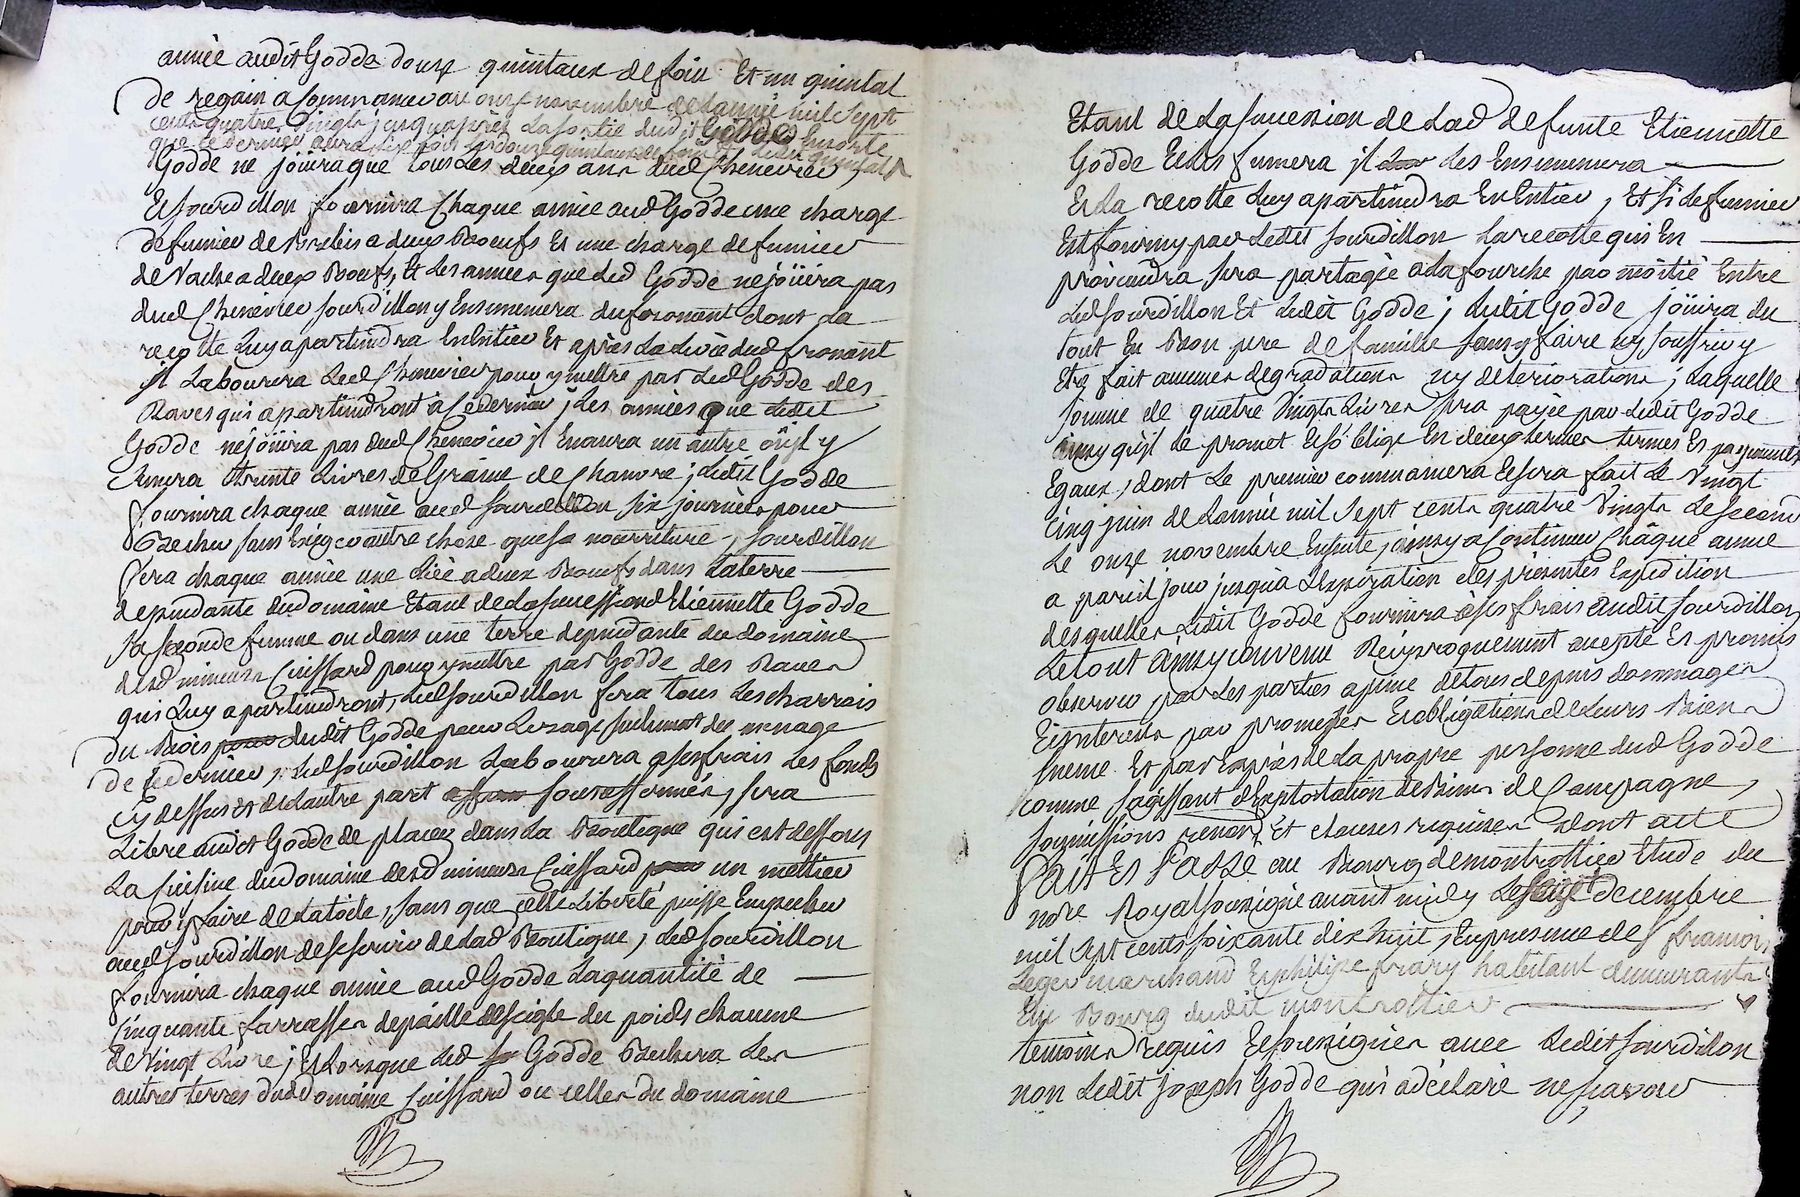 année audit Godde douze quintaux de foin Et un quintal
de regain a Commancer au onze novembre de Lannée mil sept
cents quatre vingts jusquapres La sortie dudit Godde Ensorte
que ce dernier aura six fois douze quintaux de foin
Godde ne joüira que tous Les deux ans dud Chenevier,
Et Sourdillon fournira Chaque année aud Godde une charge
de fumier de Brebis a deux Boeufs Et une charge de fumier
de Vache a deux Boeufs, Et Les années que Led Godde ne joüira pas
dud Chenevier Sourdillon y Ensemencera du froment dont La
recolte Luy apartiendra En Entier Et après La Levée dud froment
il Labourera Led Chenevier pour y mettre par Led Godde des
Raves qui apartiendront à ce dernier; Les années que Ledit
Godde ne joüira pas dud Chenevier il En aura un autre où il y
Semera trente Livres de Graine de Chanvre; Ledit Godde
fournira chaque année aud Sourdillon six journées pour
Becher sans Exiger autre chose que sa nourriture, Sourdillon
fera chaque année une Liée a deux Boeufs dans La terre
dependante du domaine Etant de La succession d'Etiennette Godde
sa seconde femme ou dans une terre dependante du domaine
desd mineurs Cuissard pour y mettre par Godde des Raves
qui Luy apartiendront, Led Sourdillon fera tous Les charrois
du Bois pour dudit Godde pour Lusage seulement du menage
de ce dernier, Led Sourdillon Labourera a ses frais Les fonds
cy dessus et de Lautre part sousaffermés, sera
Libre audit Godde de placer dans La Boutique qui est dessous
La Cuisine du domaine desd mineurs Cuissard pour un mettier
pour y faire de La toile, sans que cette Liberté puisse Empecher
aud Sourdillon de se servir de Lad Boutique, Led Sourdillon
fournira chaque année aud Godde La quantité de
Cinquante farrasses de paille de seigle du poids chacune
de Vingt Livre; Et Lorsque Led Godde Bechera Les
autres terres dud Domaine Cuissard ou celles du domaine
Etant de La succession de Lad defunte Etiennette
Godde Et Les fumera il Les Ensemencera
Et La recolte Luy apartiendra En Entier, Et si Le fumier
Est fourny par Ledit Sourdillon La recolte qui En
proviendra sera partagée a La fourche par moitié Entre
Led Sourdillon Et Ledit Godde; Ledit Godde joüira du
tout En Bon pere de famille sans y faire ny souffrir y
Etre fait aucunes degradations ny deteriorations; Laquelle
somme de quatre Vingts Livres sera payée par Ledit Godde
ainsy qu'il Le promet Et s'oblige En deux termes termes Et payements
Egaux, dont Le premier commancera Et sera fait Le Vingt
Cinq juin de Lannée mil Sept cents quatre Vingts Le Second
Le onze novembre Ensuite, ainsy a Continuer Châque année
a pareil jour jusqua Lexpiration des presentes Expedition
desquelles Ledit Godde fournira à ses frais audit Sourdillon
Le tout ainsy convenu Reciproquement accepté Et promis
observer par Les parties a peine de tous depens dommages
Et interests par promesses Et obligations de Leurs Biens
meme Et par Exprès de La propre personne dud Godde
comme sagissant d'Exploitation de Biens de Campagne,
soumissions renonc Et clauses requises Dont acte
Fait Et Passé au Bourg de montrottier Etude du
nore Royal soussigné avant midy Le Seize decembre
mil sept cents soixante dix huit, En presence de Sr francois
Leger marchand Et philipe frary habitant demeurants
En Bourg dudit montrottier
temoins requis Et soussignés avec Ledit Sourdillon
non Ledit joseph Godde qui a déclaré ne sçavoir